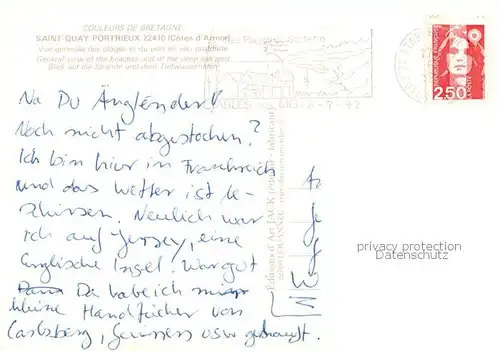 COULEURS DE BRETAGNE
SAINT-QUAY PORTRIEUX 22410 (Côtes d'Armor)
Vue générale des plages et du port en eau profonde
General view of the beaches and of the deep sea port
Blick auf die Strände und den Tiefwasserhafen
RÉPUBLIQUE FRANÇAISE
LA POSTE
2,50
Na Du Ängländer!
Noch nicht abgestochen?
Ich bin hier in Frankreich
und das Wetter ist be-
schissen. Neulich war
ich auf Jersey, eine
Englische Insel. War gut
Da habe ich
kleine Handtücher von
Carlsberg, Guinness usw gekauft.
Editions d'Art JACK
privacy protection
Datenschutz